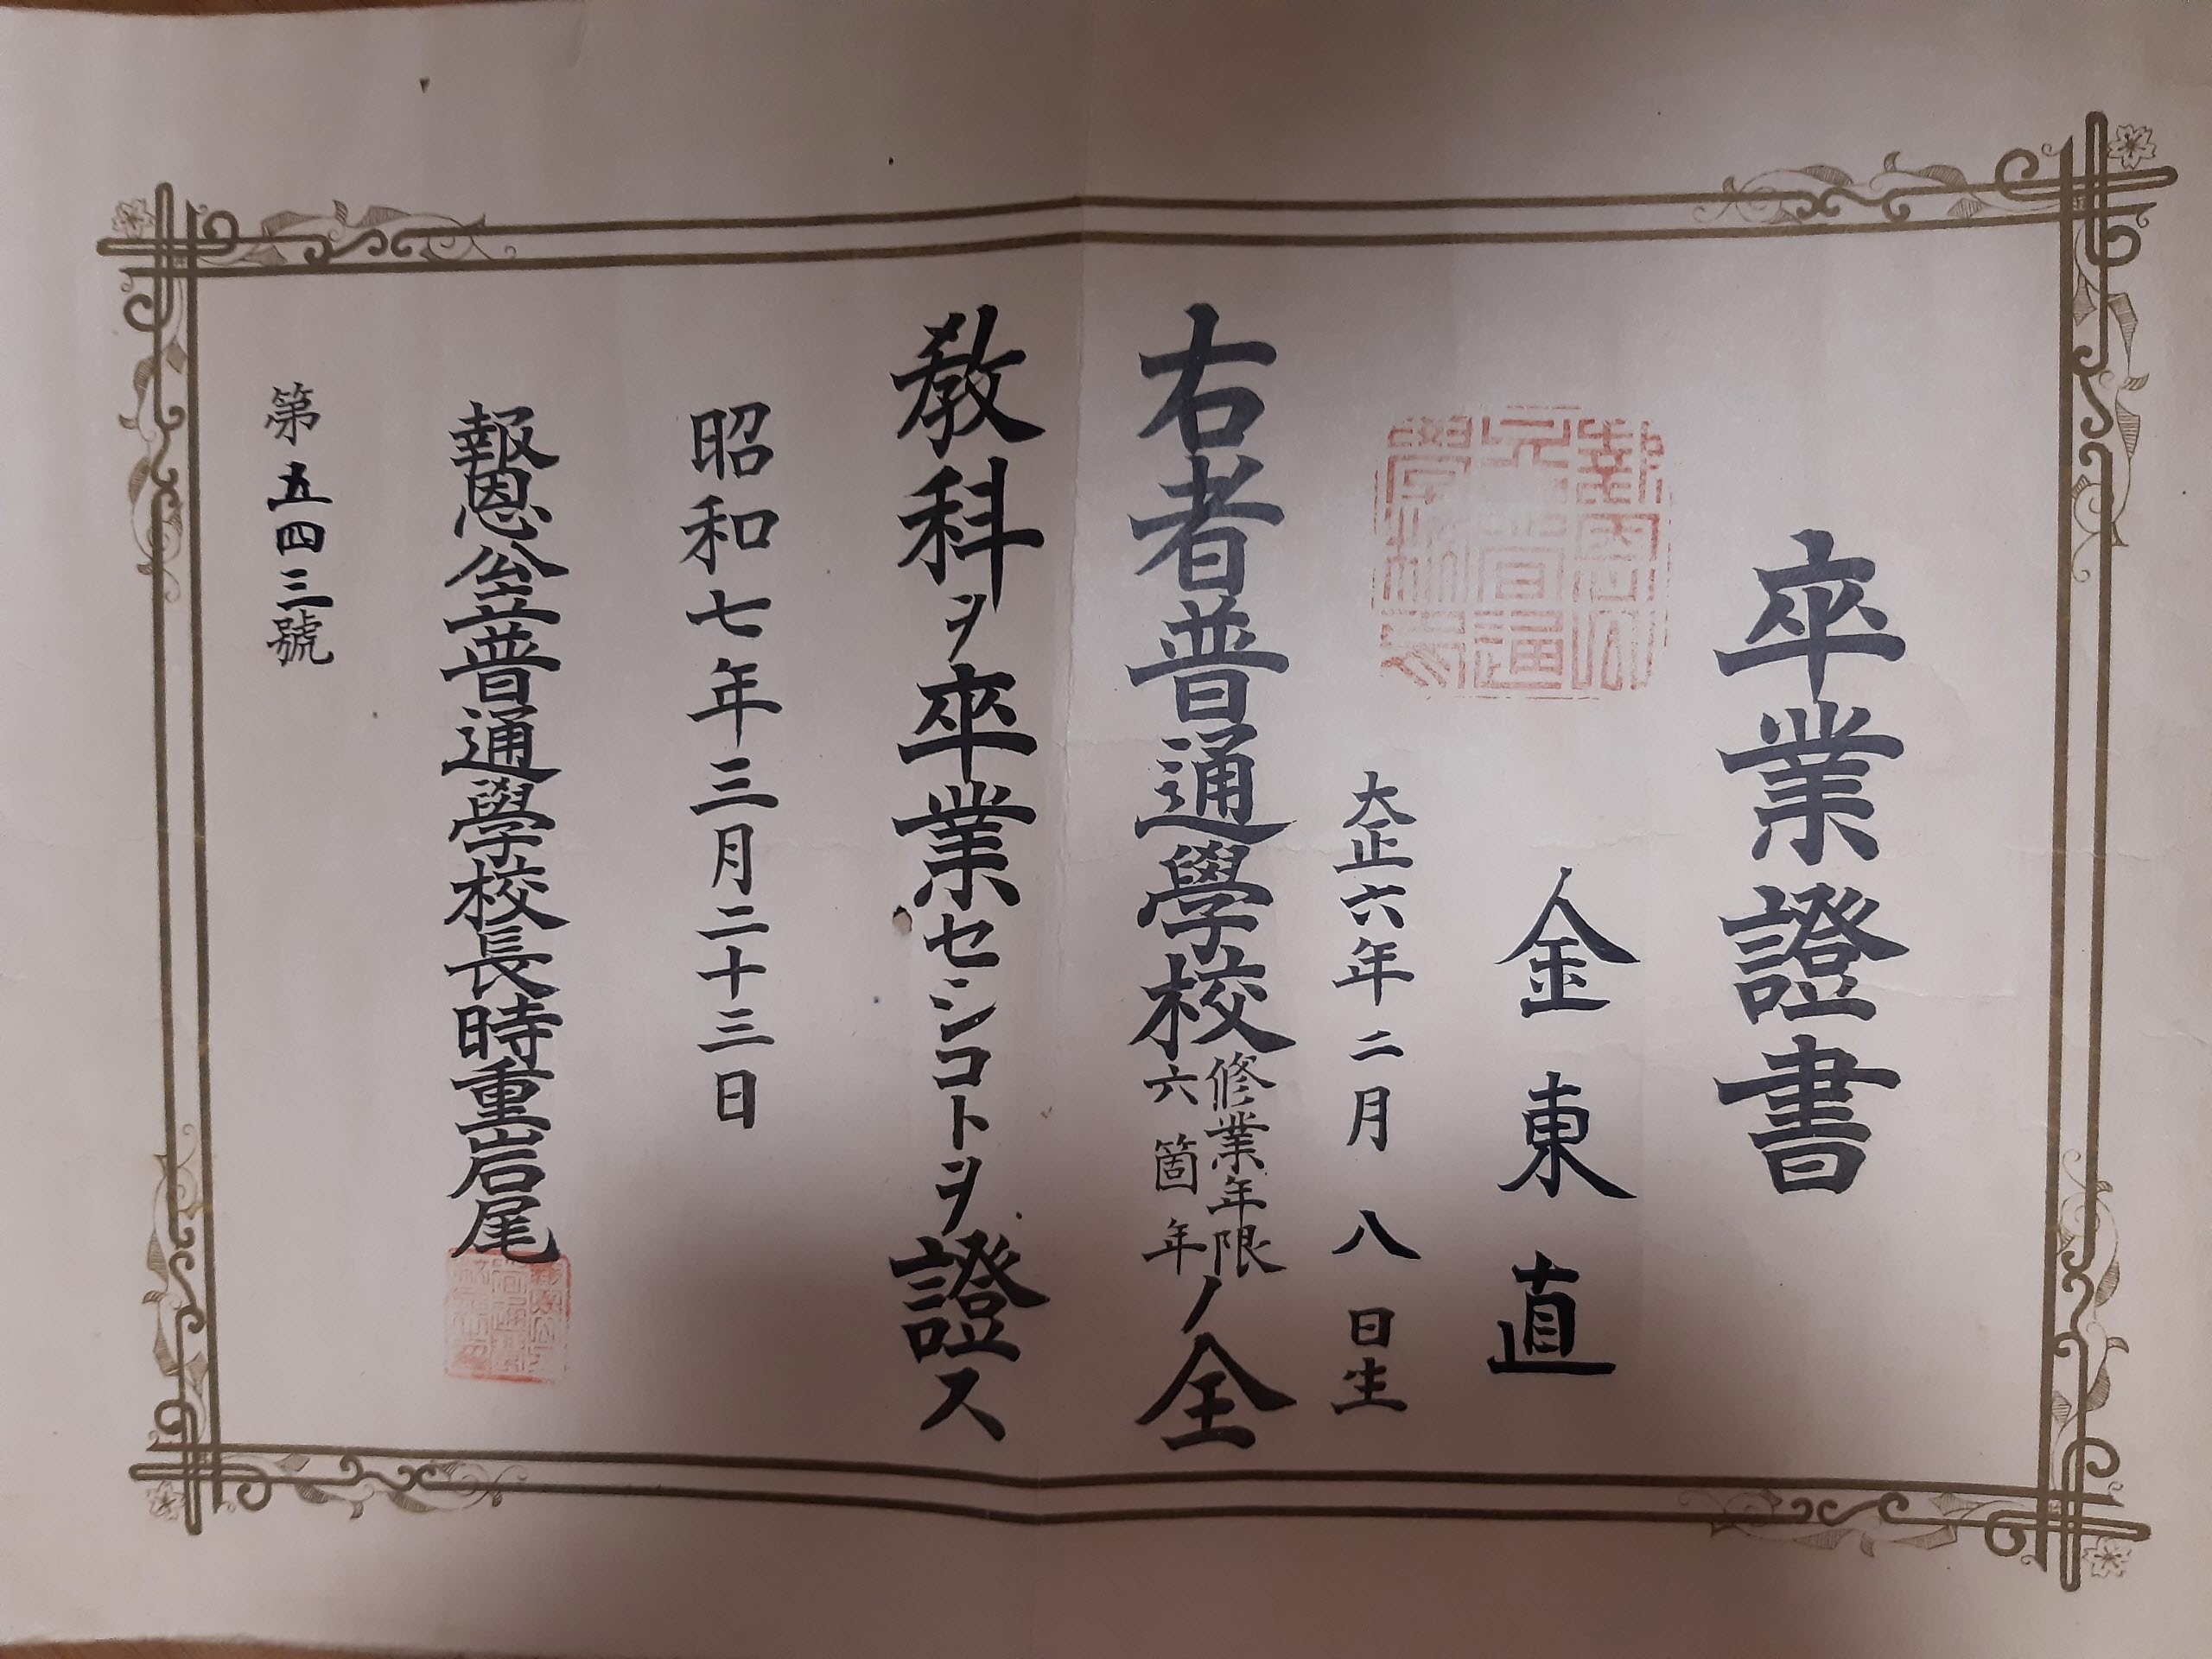 卒業證書
金東直
大正六年二月八日生
右者普通學校修業年限六箇年ノ全
教科ヲ卒業セシコトヲ證ス
昭和七年三月二十三日
報恩公立普通學校長時重岩尾
第五四三號